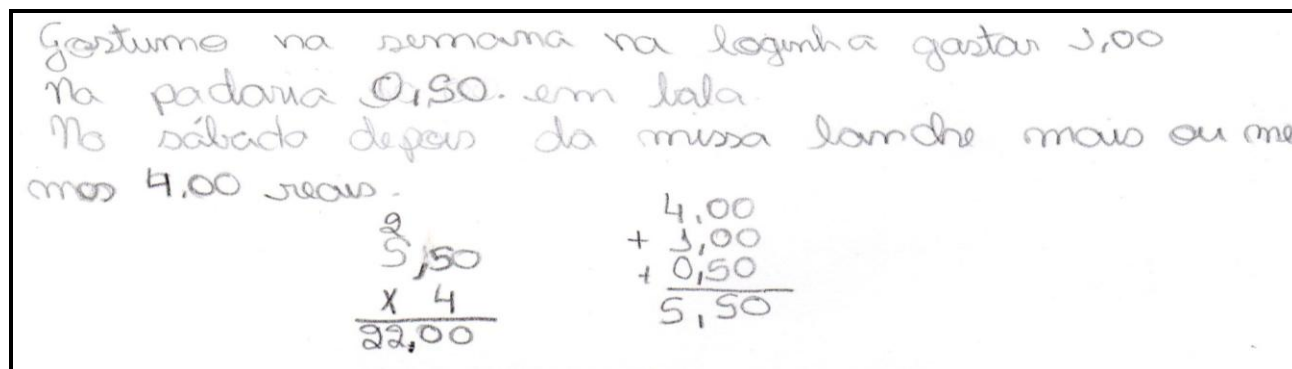 Gostumo na semana na loginha gastar 1,00
Na padaria 0,50. em bala.
No sábado depois da missa lanche mais ou me
nos 4,00 reais.
2
5,50
x 4
22,00
4,00
+ 1,00
+ 0,50
5,50